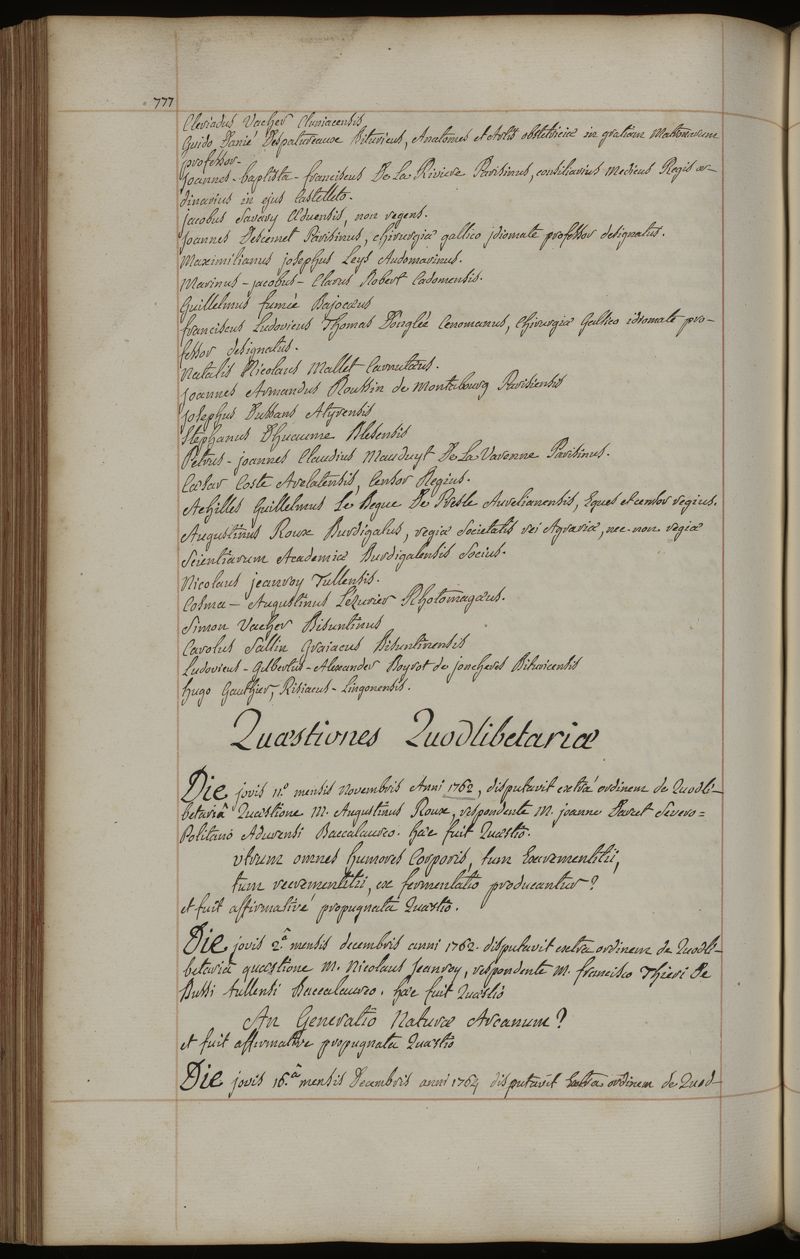 777
Cleriadus Vacher Cluniacensis
Guido Danié Despatureaux Bituricus, Anatomes et Artis obstetriciæ in gratiam Matronarum
professor.
Joannes-baptista-franciscus De La Riviere Parisinus, consiliarius Medicus Regis or-
dinarius in ejus Castelleto.
jacobus Savary Æduensis, non regens.
Joannes Descemet Parisinus, chirurgiæ gallico jdiomate professor designatus.
Maximilianus josephus Leys Audomarinus.
Marinus-jacobus-Clarus Robert Cadomensis.
Guillelmus fumée Bajocæus
franciscus Ludovicus Thomas D'onglée Cenomanus, Chirurgiæ Gallico idiomate pro-
fessor designatus.
Natalis Nicolaus Mallet Carnutæus.
Joannes Armandus Roussin de Montabourg Parisiensis
Josephus Dussans Atyrensis
Stephanus Dhuaume Blesensis
Petrus-joannes Claudius Mauduyt De La Varenne Parisinus.
Cæsar Coste Arelatensis, Censor Regius.
Achilles Guillelmus Le Begue De Presle Aurelianensis, Eques et censor regius.
Augustinus Roux Burdigalus, regiæ Societatis rei Agrariæ, nec-non regiæ
Scientiarum Academiæ Burdigalensis Socius.
Nicolaus jeanroy Tullensis.
Cosma-Augustinus Lézurier Rhotomagæus.
Simon Vacher Bisuntinus
Carolus Sallin Graiacus Bisuntinensis
Ludovicus-Gilbertus-Alexander Boyrot de joncheres Bituricensis
Hugo Gauthier, Risiacus-Lingonensis.
Quæstiones Quodlibetariæ
Die jovis 11.º mensis Novembris Anni 1762, disputavit extrà ordinem de Quodli-
betariâ Quæstione M. Augustinus Roux, respondente M. joanne Darcet Severo=
Politano Adurensi Baccalaureo. hæc fuit Quæstio.
utrum omnes humores Corporis, tum Excrementitii,
tum recrementitii, ex fermentatio producantur?
et fuit affirmativé propugnata Quæstio.
Die jovis 2.ª mensis decembris anni 1762. disputavit extra ordinem de Quodli-
betariâ quæstione M. Nicolaus Jeanroy, respondente M. francisco Thieri De
Bussi tullensi Baccalaureo. hæc fuit Quæstio
An Generatio Naturæ Arcanum?
et fuit affirmative propugnata Quæstio
Die jovis 16.ª mensis Decembris anni 1762 disputavit Extra ordinem de Quod-